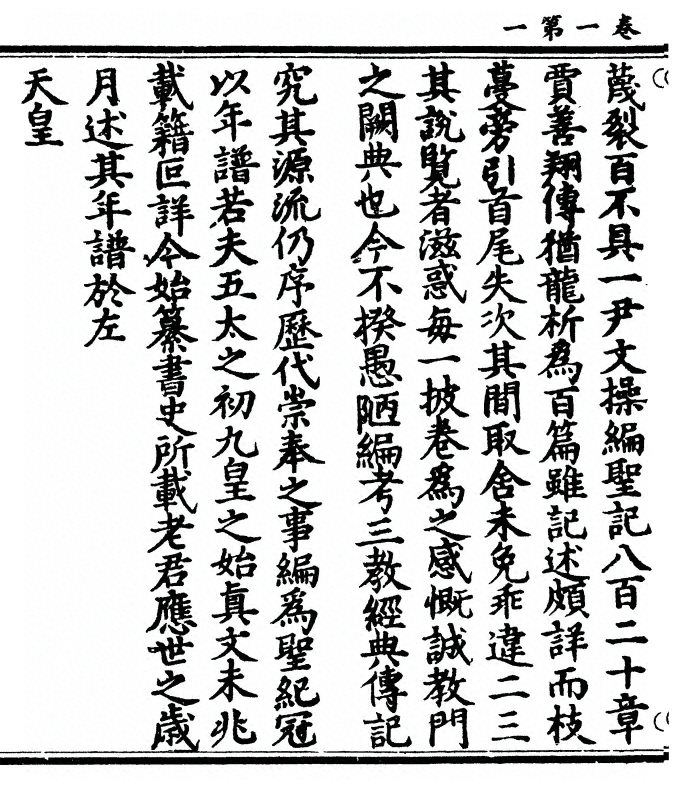 卷一第一
蔑裂百不具一尹文操編聖記八百二十章
賈善翔傳猶龍析為百篇雖記述頗詳而枝
蔓旁引首尾失次其間取舍未免乖違二三
其說覽者滋惑每一披卷為之感慨誠教門
之闕典也今不揆愚陋編考三教經典傳記
究其源流仍序歷代崇奉之事編為聖紀冠
以年譜若夫五太之初九皇之始真文未兆
載籍叵詳今始纂書史所載老君應世之歲
月述其年譜於左
天皇